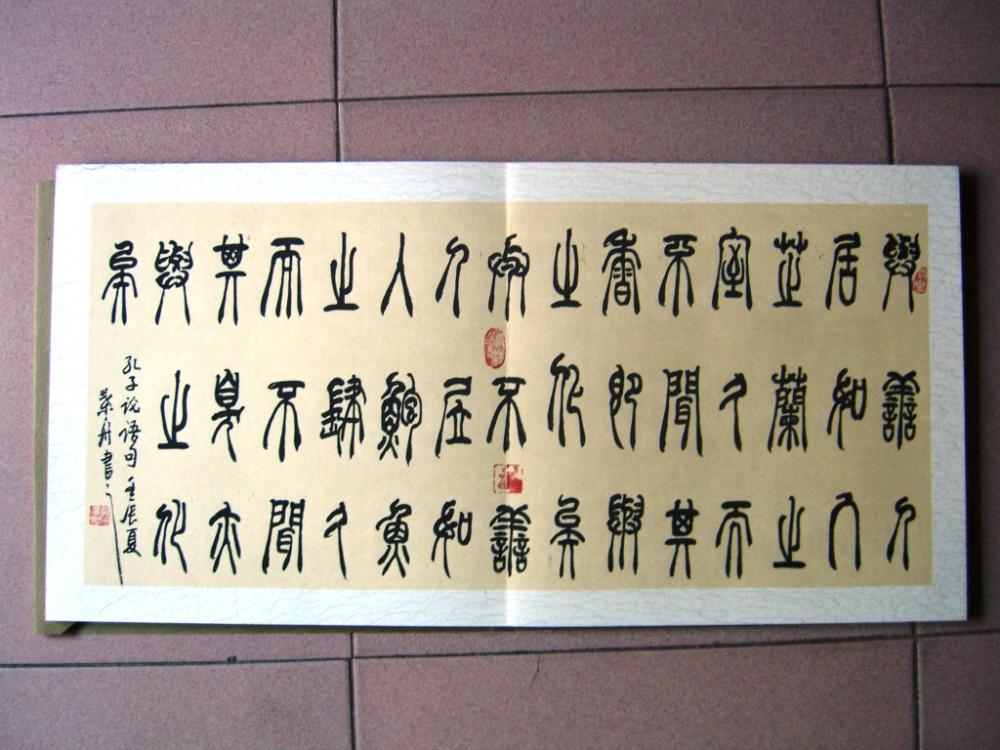 與善人
居如入
芝蘭之
室久而
不聞其
香即與
之化矣
與不善
人居如
入鮑魚
之肆久
而不聞
其臭亦
與之化
矣
孔子论语句壬辰夏
葉舟書之